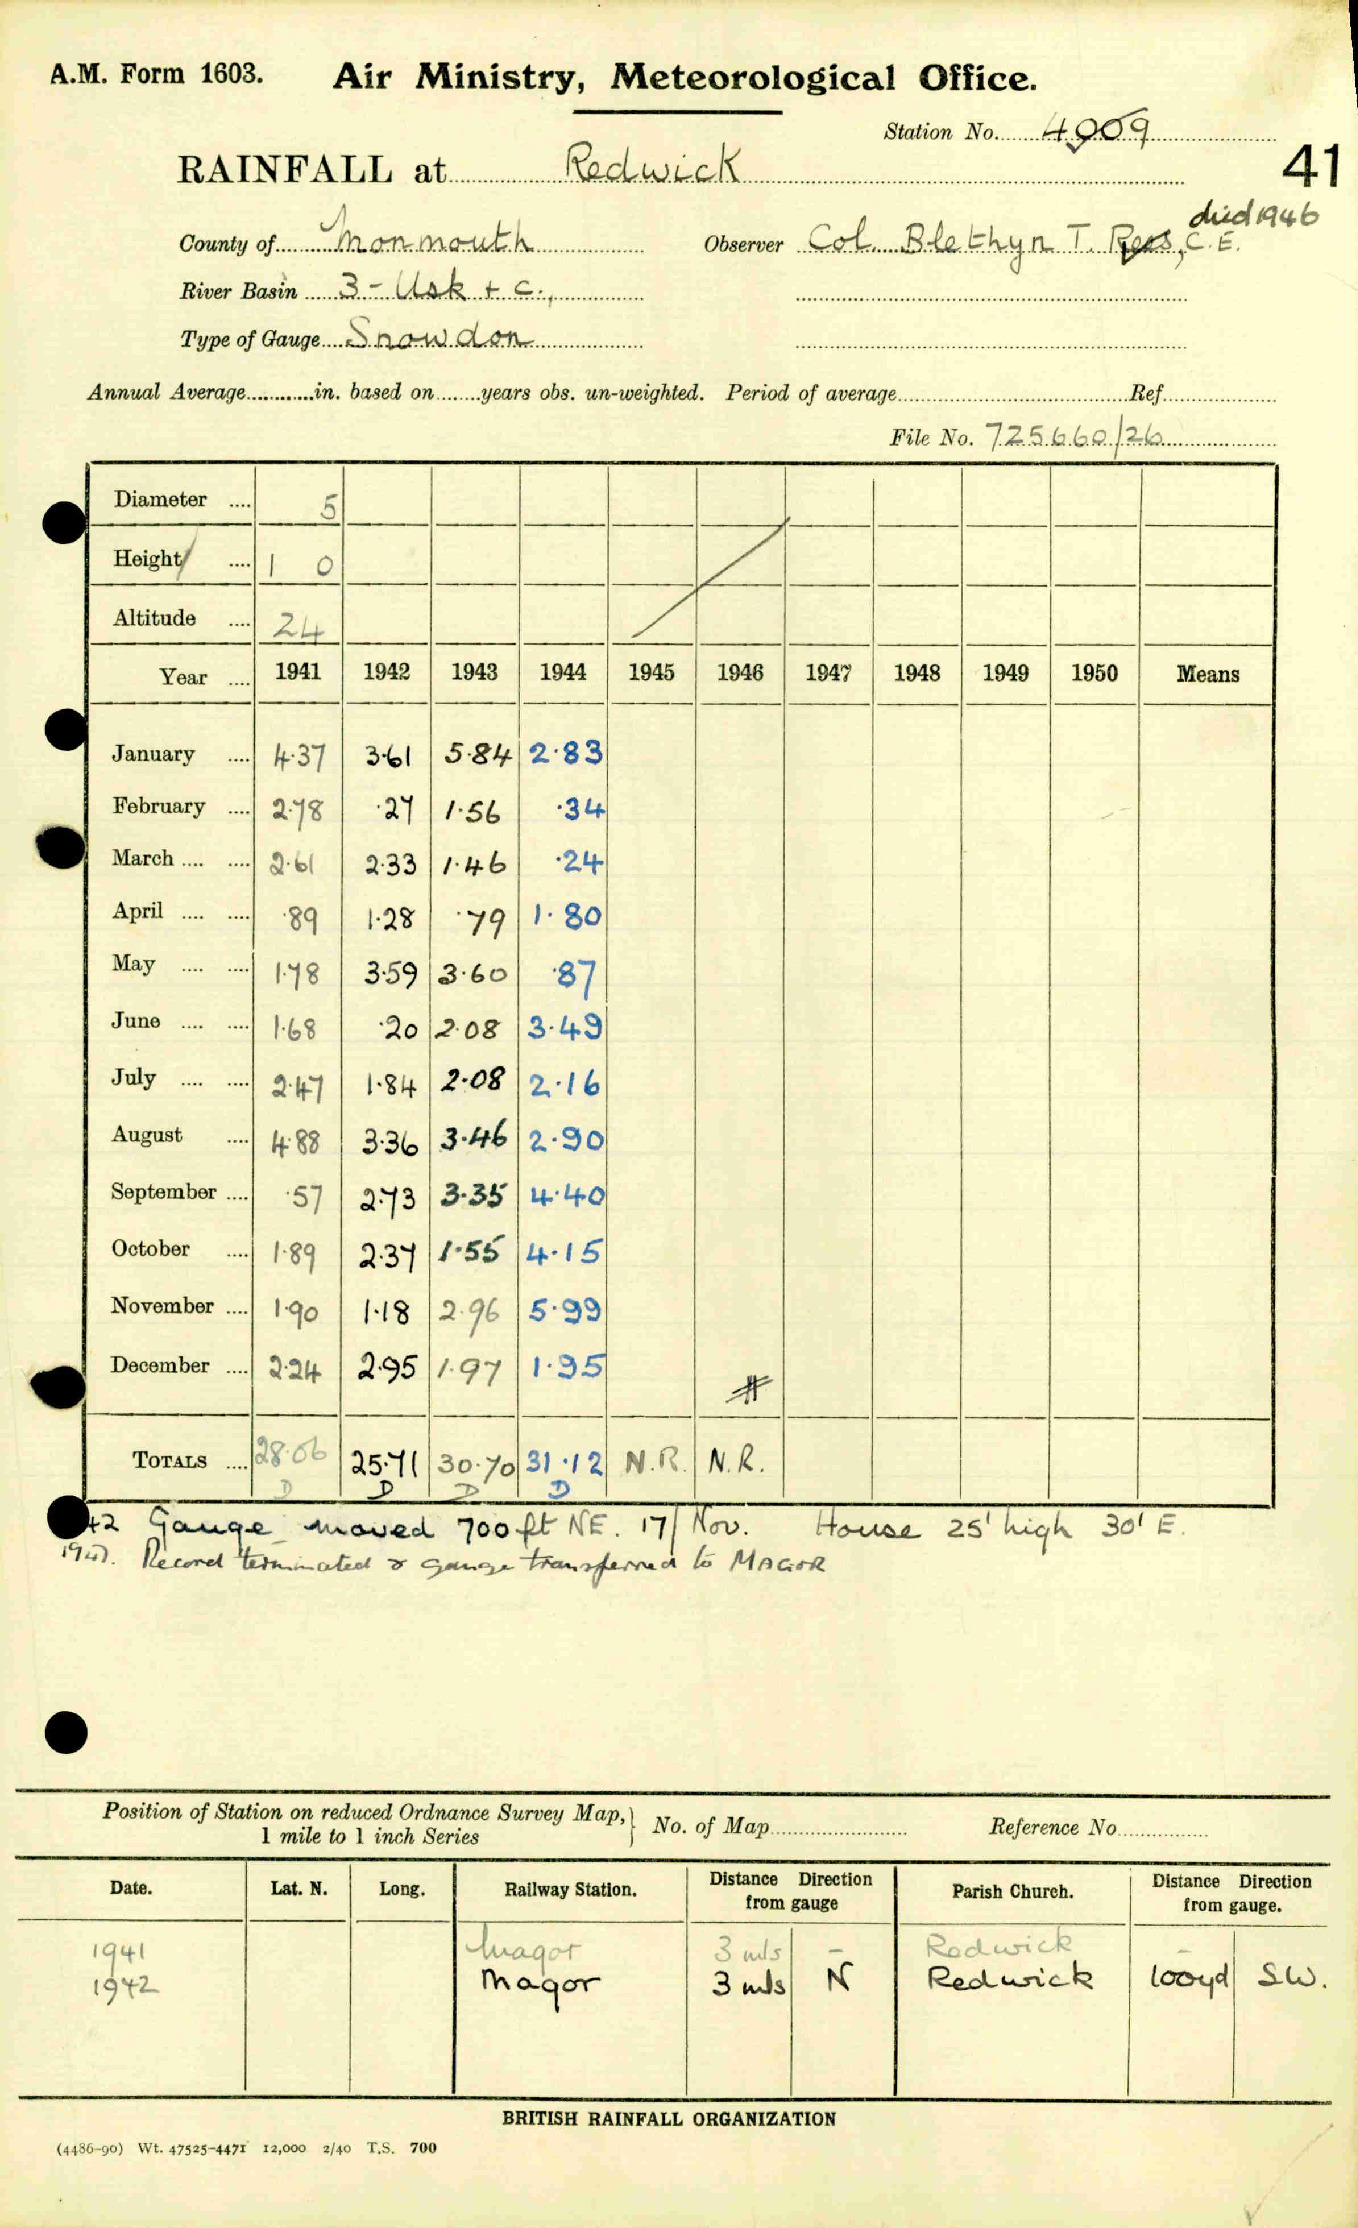 A.M. Form 1603. Air Ministry, Meteorological Office.
Station No. 4009
41
RAINFALL at Redwick
died 1946
County of Monmouth Observer Col. Blethyn T. Rees, C.E.
River Basin 3 - Usk + c.,
Type of Gauge Snowdon
Annual Average in. based on years obs. un-weighted. Period of average Ref.
File No. 725660/26
Diameter 5
Height 1 0
Altitude 24
Year 1941 1942 1943 1944 1945 1946 1947 1948 1949 1950 Means
January 4.37 3.61 5.84 2.83
February 2.78 .27 1.56 .34
March 2.61 2.33 1.46 .24
April .89 1.28 .79 1.80
May 1.78 3.59 3.60 .87
June 1.68 .20 2.08 3.49
July 2.47 1.84 2.08 2.16
August 4.88 3.36 3.46 2.90
September .57 2.73 3.35 4.40
October 1.89 2.37 1.55 4.15
November 1.90 1.18 2.96 5.99
December 2.24 2.95 1.97 1.95
TOTALS 28.06 25.71 30.70 31.12 N.R. N.R.
D D D D
42 Gauge moved 700 ft NE. 17/Nov. House 25' high 30' E.
1947. Record terminated & gauge transferred to MAGOR
Position of Station on reduced Ordnance Survey Map, 1 mile to 1 inch Series No. of Map Reference No.
Date. Lat. N. Long. Railway Station. Distance Direction from gauge Parish Church. Distance Direction from gauge.
1941 Magor 3 mls - Redwick -
1942 Magor 3 mls N Redwick 100yd S.W.
BRITISH RAINFALL ORGANIZATION
(4486-90) Wt. 47525-4471 12,000 2/40 T.S. 700